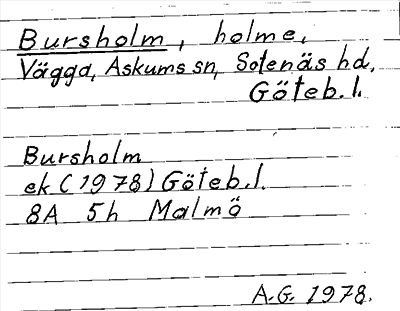 Bursholm, holme,
Vägga, Askums sn, Sotenäs hd,
Göteb. l.
Bursholm
ek (1978) Göteb. l.
8A 5h Malmö
A.G. 1978.